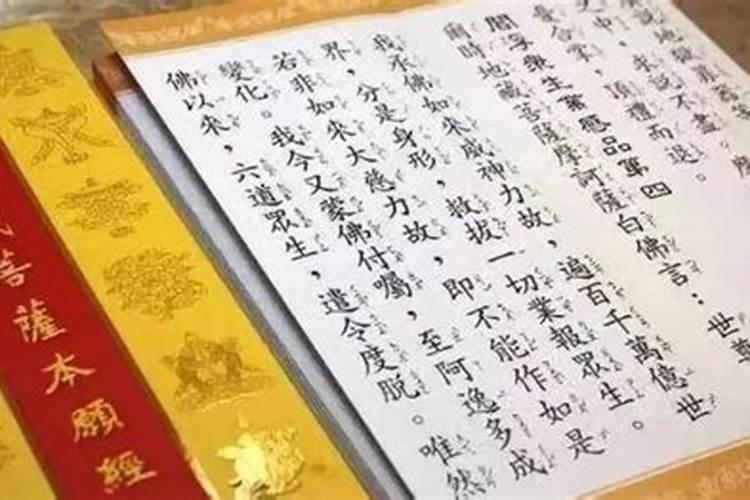 中，求說不盡。
合掌，頂禮而退。
閻浮眾生業感品第四
爾時地藏菩薩摩訶薩白佛言：世尊
我承佛如來威神力故，遍百千萬億世
界，分是身形，救拔一切業報眾生。
若非如來大慈力故，即不能作如是
變化。我今又蒙佛付囑，至阿逸多成
佛以來，六道眾生，遣令度脫。唯然
菩薩本願經